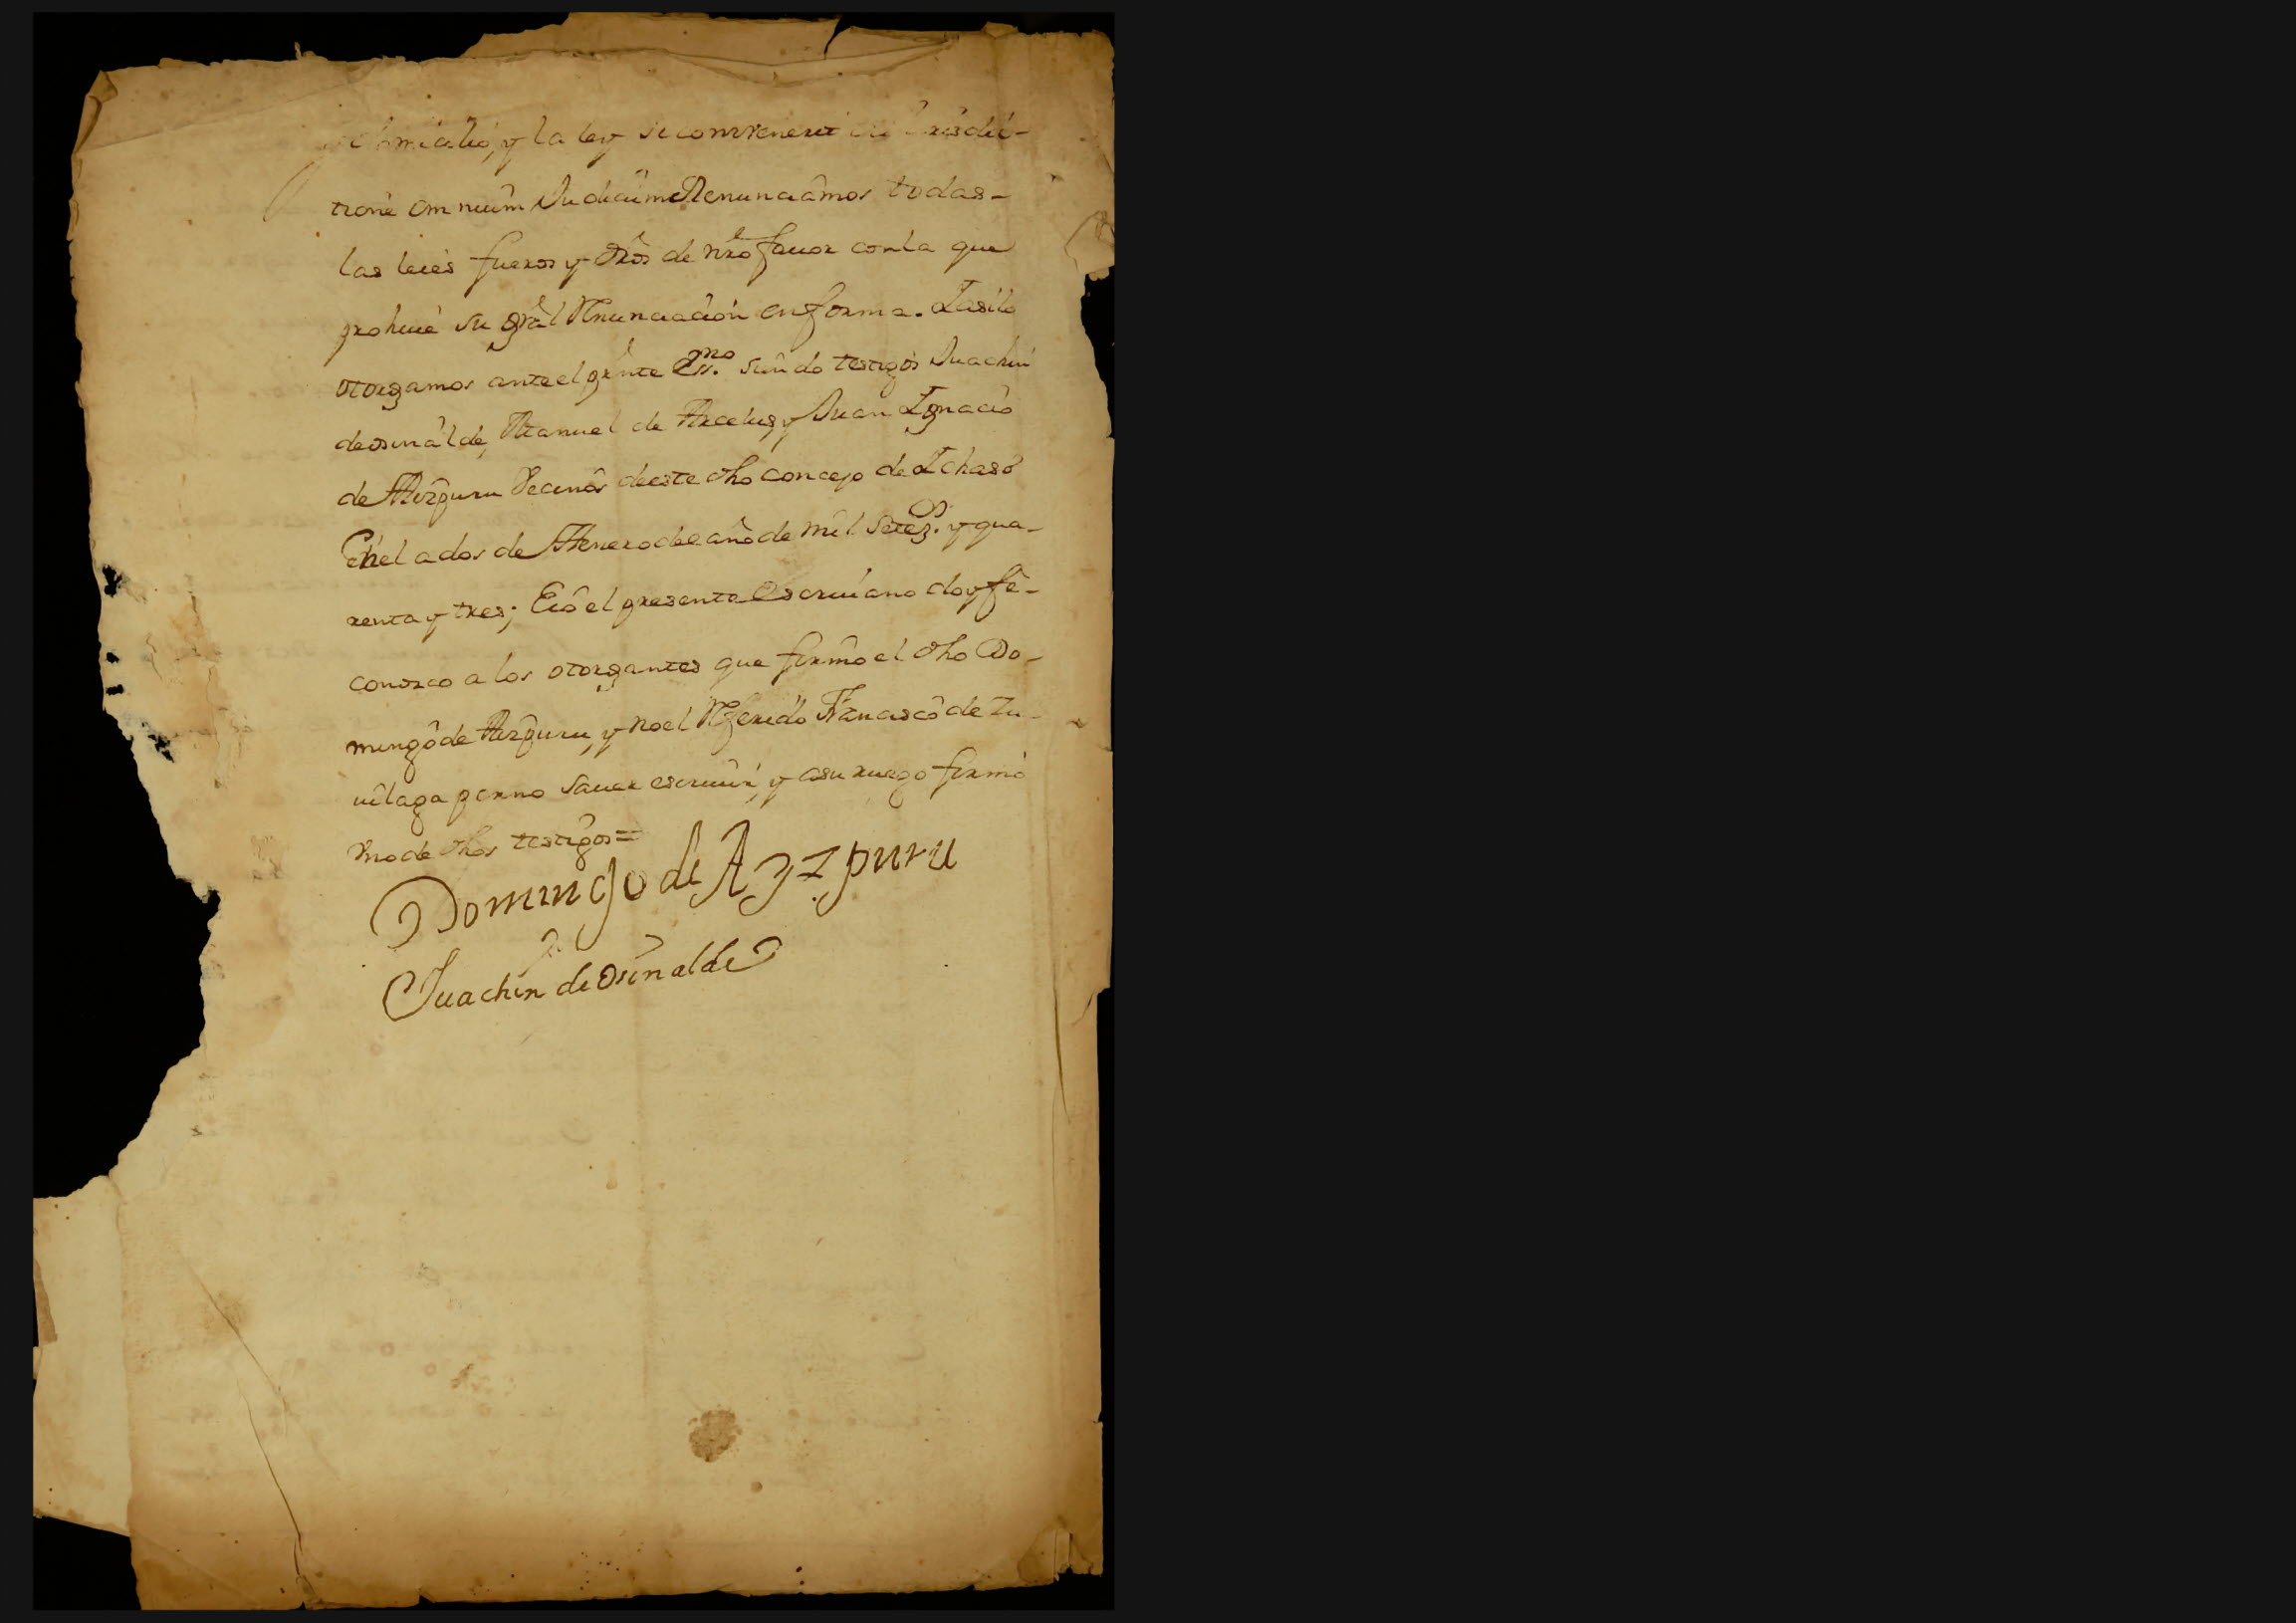 Domicilio, y la ley si comvenerit de Jurisdic-
tione omnium Judicum Renunciamos todas-
las leies fueros y dros de nro favor con la que
prohive su gral Renunciacion en forma. I asilo
otorgamos ante el prnte Essno. siendo testigos Juachin
de osinalde, Manuel de Arcelus, y Juan Ignacio
de Aizpuru Vecinos de este dho concejo de Ichaso
En el a dos de Henero de el año de mil Setezs. y qua-
renta y tres; E io el presente Escriuano doy fe-
conozco a los otorgantes que firmo el dho Do-
mingo de Aizpuru, y no el Referido Francisco de Zu-
uilaga por no sauer escriuir, y a su ruego firmo
Vno de dhos testigos=
Domingo de Ayzpuru
Juachin de Osinalde